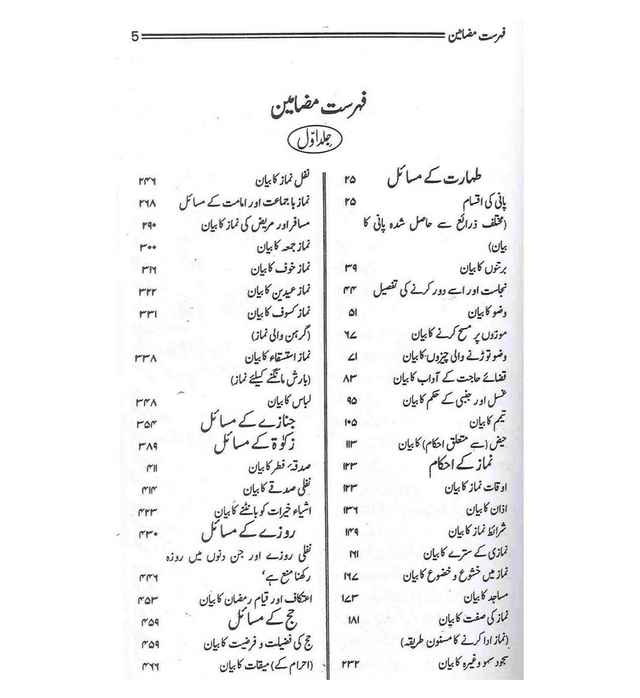 فہرست مضامین 5
فہرست مضامین
جلد اوّل
طہارت کے مسائل ۲۵
پانی کی اقسام ۲۵
(مختلف ذرائع سے حاصل شدہ پانی کا
بیان)
برتنوں کا بیان ۳۹
نجاست اور اسے دور کرنے کی تفصیل ۴۴
وضو کا بیان ۵۱
موزوں پر مسح کرنے کا بیان ۶۷
وضو توڑنے والی چیزوں کا بیان ۷۱
قضائے حاجت کے آداب کا بیان ۸۳
غسل اور جنبی کے حکم کا بیان ۹۵
تیمم کا بیان ۱۰۵
حیض (سے متعلق احکام) کا بیان ۱۱۳
نماز کے احکام ۱۲۳
اوقات نماز کا بیان ۱۲۳
اذان کا بیان ۱۳۶
شرائط نماز کا بیان ۱۴۹
نمازی کے سترے کا بیان ۱۶۱
نماز میں خشوع و خضوع کا بیان ۱۶۷
مساجد کا بیان ۱۷۳
نماز کی صفت کا بیان ۱۸۱
(نماز ادا کرنے کا مسنون طریقہ)
سجود سہو وغیرہ کا بیان ۲۳۲
نفل نماز کا بیان ۲۴۶
نماز باجماعت اور امامت کے مسائل ۲۶۸
مسافر اور مریض کی نماز کا بیان ۲۹۰
نماز جمعہ کا بیان ۳۰۰
نماز خوف کا بیان ۳۱۶
نماز عیدین کا بیان ۳۲۲
نماز کسوف کا بیان ۳۳۱
(گرہن والی نماز)
نماز استسقاء کا بیان ۳۳۸
(بارش مانگنے کیلئے نماز)
لباس کا بیان ۳۴۸
جنازے کے مسائل ۳۵۴
زکوٰۃ کے مسائل ۳۸۹
صدقۂ فطر کا بیان ۴۱۱
نفلی صدقے کا بیان ۴۱۴
اشیاء خیرات کو بانٹنے کا بیان ۴۲۳
روزے کے مسائل ۴۳۰
نفلی روزے اور جن دنوں میں روزہ
رکھنا منع ہے' ۴۴۶
اعتکاف اور قیام رمضان کا بیان ۴۵۳
حج کے مسائل ۴۵۹
حج کی فضیلت و فرضیت کا بیان ۴۵۹
(احرام کے) میقات کا بیان ۴۶۶